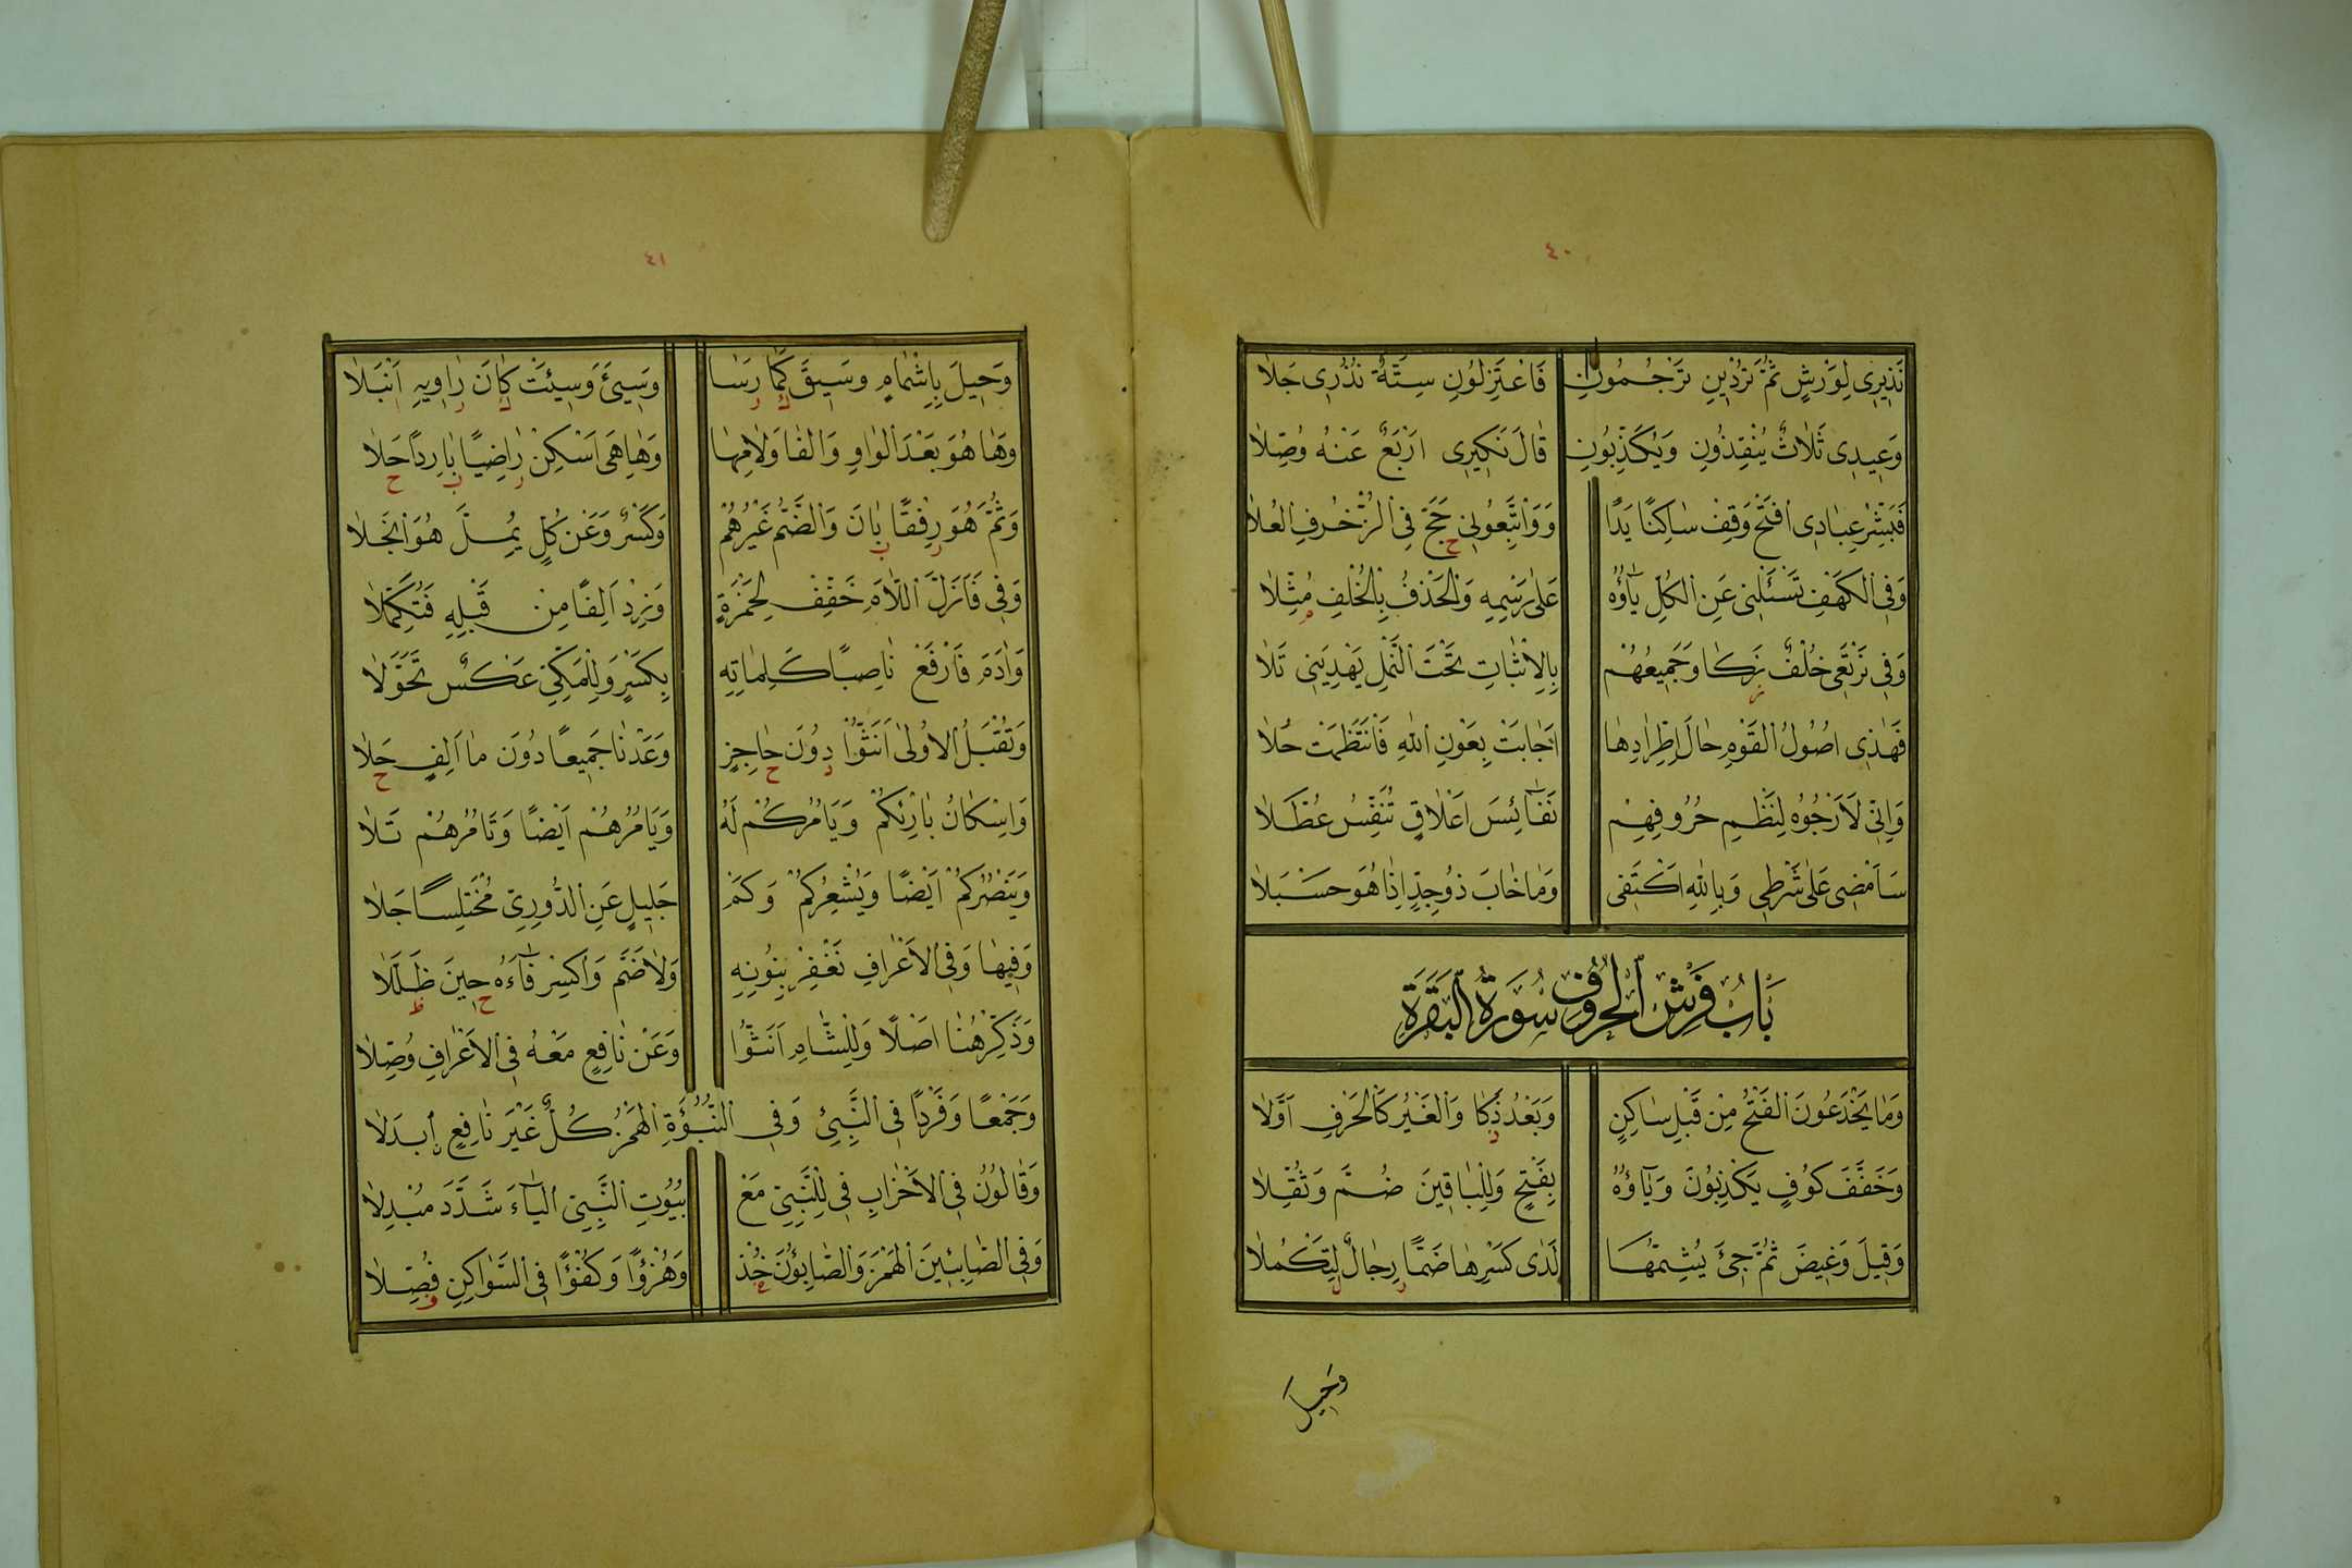 ٤٠
نَذِيرِى لِوَرْشٍ ثُمَّ تُرْدِينِ تَرْجُمُونِ فَاعْتَزِلُونِ سِتَّةٌ نُذُرِى جَلَا
وَعِيدِى ثَلَاثٌ يُنْقِذُونِ وَيُكَذِّبُونِ قَالَ نَكِيرِى اَرْبَعٌ عَنْهُ وُصِّلَا
فَبَشِّرْ عِبَادِى افْتَحْ وَقِفْ سَاكِنًا يَدًا وَوَاتَّبِعُونِى حَجَّ فِى الزُّخْرُفِ الْعُلَا
وَفِى الْكَهْفِ تَسْئَلْنِى عَنِ الْكُلِّ يَاؤُهُ عَلَى رَسْمِهِ وَالْحَذْفُ بِالْخُلْفِ مُثِّلَا
وَفِى نَرْتَعِى خُلْفٌ زَكَا وَجَمِيعُهُمْ بِالْاِثْبَاتِ تَحْتَ النَّمْلِ يَهْدِيَنِى تَلَا
فَهٰذِى اُصُولُ الْقَوْمِ حَالَ اطِّرَادِهَا اَجَابَتْ بِعَوْنِ اللّٰهِ فَانْتَظَمَتْ حُلَا
وَاِنِّى لَاَرْجُوهُ لِنَظْمِ حُرُوفِهِمْ نَفَائِسَ اَعْلَاقٍ تُنَفِّسُ عُطَّلَا
سَاَمْضِى عَلَى شَرْطِى وَبِاللّٰهِ اَكْتَفِى وَمَا خَابَ ذُوجِدٍّ اِذَا هُوَ حَسْبَلَا
بَابُ فَرْشِ الْحُرُوفِ سُورَةُ الْبَقَرَةِ
وَمَا يَخْدَعُونَ الْفَتْحُ مِنْ قَبْلِ سَاكِنٍ وَبَعْدُ ذَكَا وَالْغَيْرُ كَالْحَرْفِ اَوَّلَا
وَخَفَّفَ كُوفٍ يَكْذِبُونَ وَيَاؤُهُ بِفَتْحٍ وَلِلْبَاقِينَ ضُمَّ وَثُقِّلَا
وَقِيلَ وَغِيضَ ثُمَّ جِىءَ يُشِمُّهَا لَدَى كَسْرِهَا ضَمًّا رِجَالٌ لِتَكْمُلَا
وَحِيلَ
٤١
وَحِيلَ بِاِشْمَامٍ وَسِيقَ كَمَا رَسَا وَسِىءَ وَسِيئَتْ كَانَ رَاوِيهِ اَنْبَلَا
وَهَا هُوَ بَعْدَ الْوَاوِ وَالْفَا وَلَامِهَا وَهَا هِىَ اَسْكِنْ رَاضِيًا بَارِدًا حَلَا
وَثُمَّ هُوَ رِفْقًا بَانَ وَالضَّمُّ غَيْرُهُمْ وَكَسْرٌ وَعَنْ كُلٍّ يُمِلَّ هُوَ انْجَلَا
وَفِى فَاَزَلَّ اللَّامَ خَفِّفْ لِحَمْزَةٍ وَزِدْ اَلِفًا مِنْ قَبْلِهِ فَتُكَمِّلَا
وَاٰدَمَ فَارْفَعْ نَاصِبًا كَلِمَاتِهِ بِكَسْرٍ وَلِلْمَكِّىِّ عَكْسٌ تَحَوَّلَا
وَتُقْبَلُ الْاُولَى اَنَّثُوا دُونَ حَاجِزٍ وَعَدْنَا جَمِيعًا دُونَ مَا اَلِفٍ حَلَا
وَاِسْكَانُ بَارِئِكُمْ وَيَامُرُكُمْ لَهُ وَيَامُرُهُمْ اَيْضًا وَتَامُرُهُمْ تَلَا
وَيَنْصُرُكُمْ اَيْضًا وَيُشْعِرُكُمْ وَكَمْ جَلِيلٍ عَنِ الدُّورِىِّ مُخْتَلِسًا جَلَا
وَفِيهَا وَفِى الْاَعْرَافِ نَغْفِرْ بِنُونِهِ وَلَا ضَمَّ وَاكْسِرْ فَاءَهُ حِينَ ظَلَّلَا
وَذَكِّرْ هُنَا اَصْلًا وَلِلشَّامِ اَنَّثُوا وَعَنْ نَافِعٍ مَعْهُ فِى الْاَعْرَافِ وُصِّلَا
وَجَمْعًا وَفَرْدًا فِى النَّبِىءِ وَفِى النُّبُوءَةِ الْهَمْزَ كُلٌّ غَيْرَ نَافِعٍ اِبْدَلَا
وَقَالُونُ فِى الْاَحْزَابِ فِى لِلنَّبِىِّ مَعْ بُيُوتَ النَّبِىِّ الْيَاءَ شَدَّدَ مُبْدِلَا
وَفِى الصَّابِئِينَ الْهَمْزَ وَالصَّابِئُونَ خُذْ وَهُزْؤًا وَكُفْؤًا فِى السَّوَاكِنِ فُصِّلَا